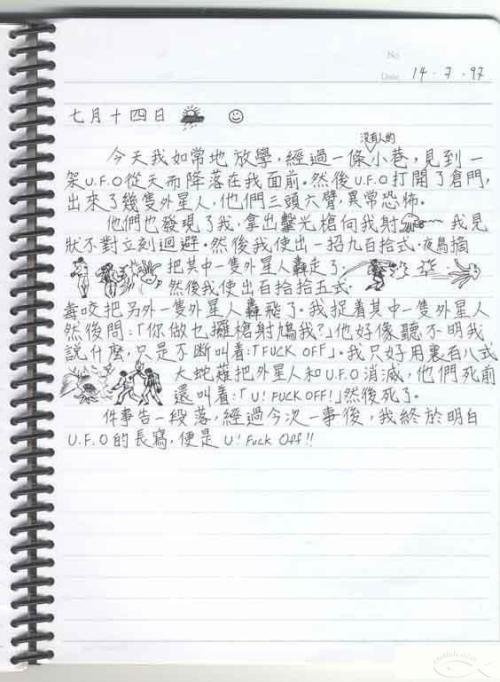 No
Date 14・7・97
七月十四日
沒有人的
今天我如常地放學，經過一條小巷，見到一
架U.F.O從天而降落在我面前。然後U.F.O打開了倉門，
出來了幾隻外星人，他們三頭六臂，異常恐怖。
他們也發現了我，拿出鐳光槍向我射 我見
狀不對立刻迴避。然後我使出一招九百拾式・
把其中一隻外星人轟走了，
然後我使出百拾拾五式・
毒咬把另外一隻外星人轟飛了。我捉着其中一隻外星人
然後問：「你做乜攞槍射鳩我？」他好像聽不明我
說什麼，只是不斷叫着：「FUCK OFF」。我只好用裏百八式
大蛇薙把外星人和U.F.O消滅，他們死前
還叫着：「U! FUCK OFF!」然後死了。
件事告一段落，經過今次一事後，我終於明白
U.F.O的長寫，便是U! Fuck Off!!